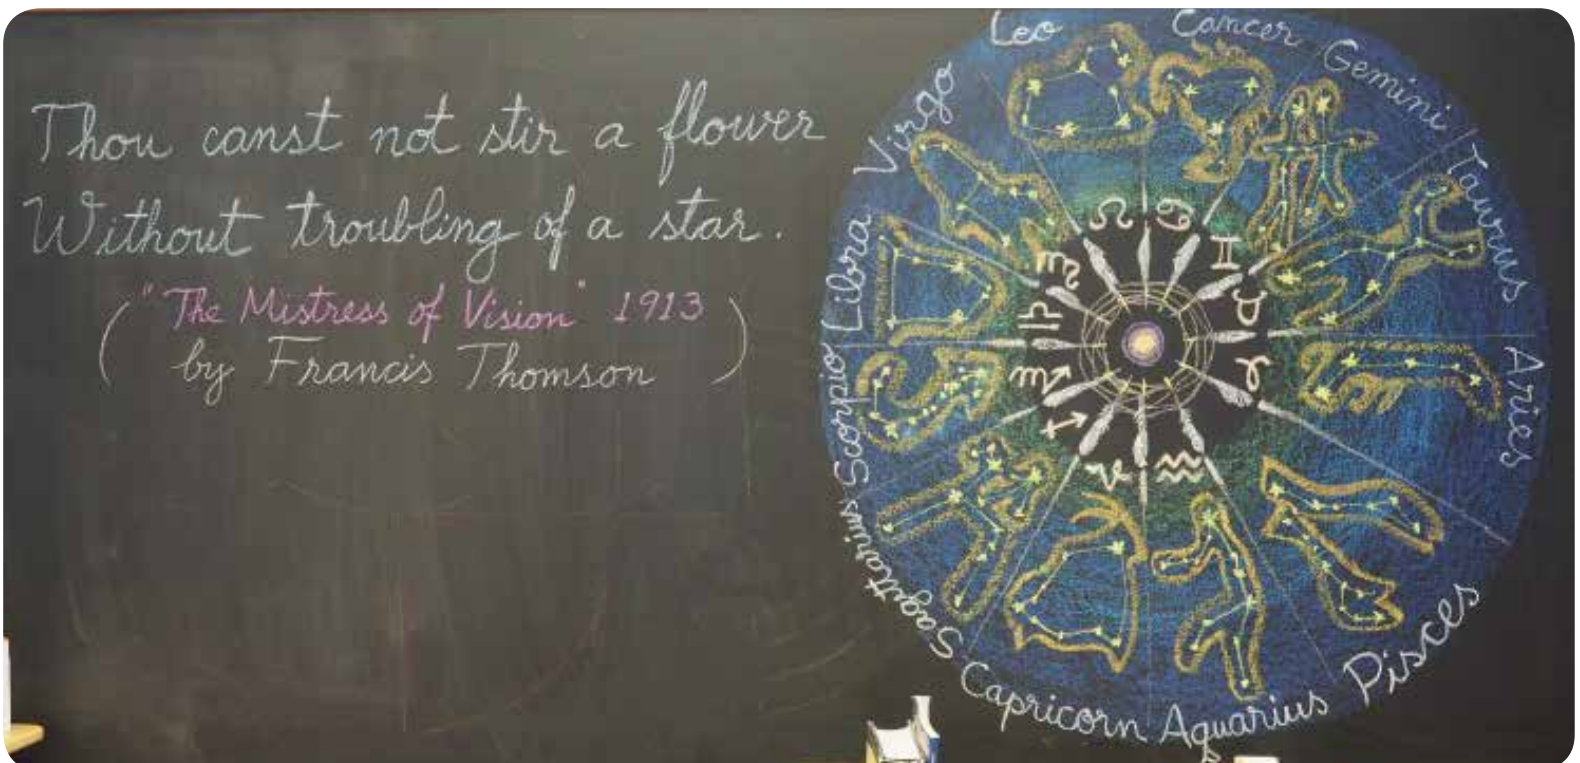 Thou canst not stir a flower
Without troubling of a star.
("The Mistress of Vision" 1913
by Francis Thomson)
Leo
Cancer
Gemini
Taurus
Aries
Pisces
Aquarius
Capricorn
Sagittarius
Scorpio
Libra
Virgo
♌
♋
♊
♉
♈
♒
♑
♐
♏
♎
♍